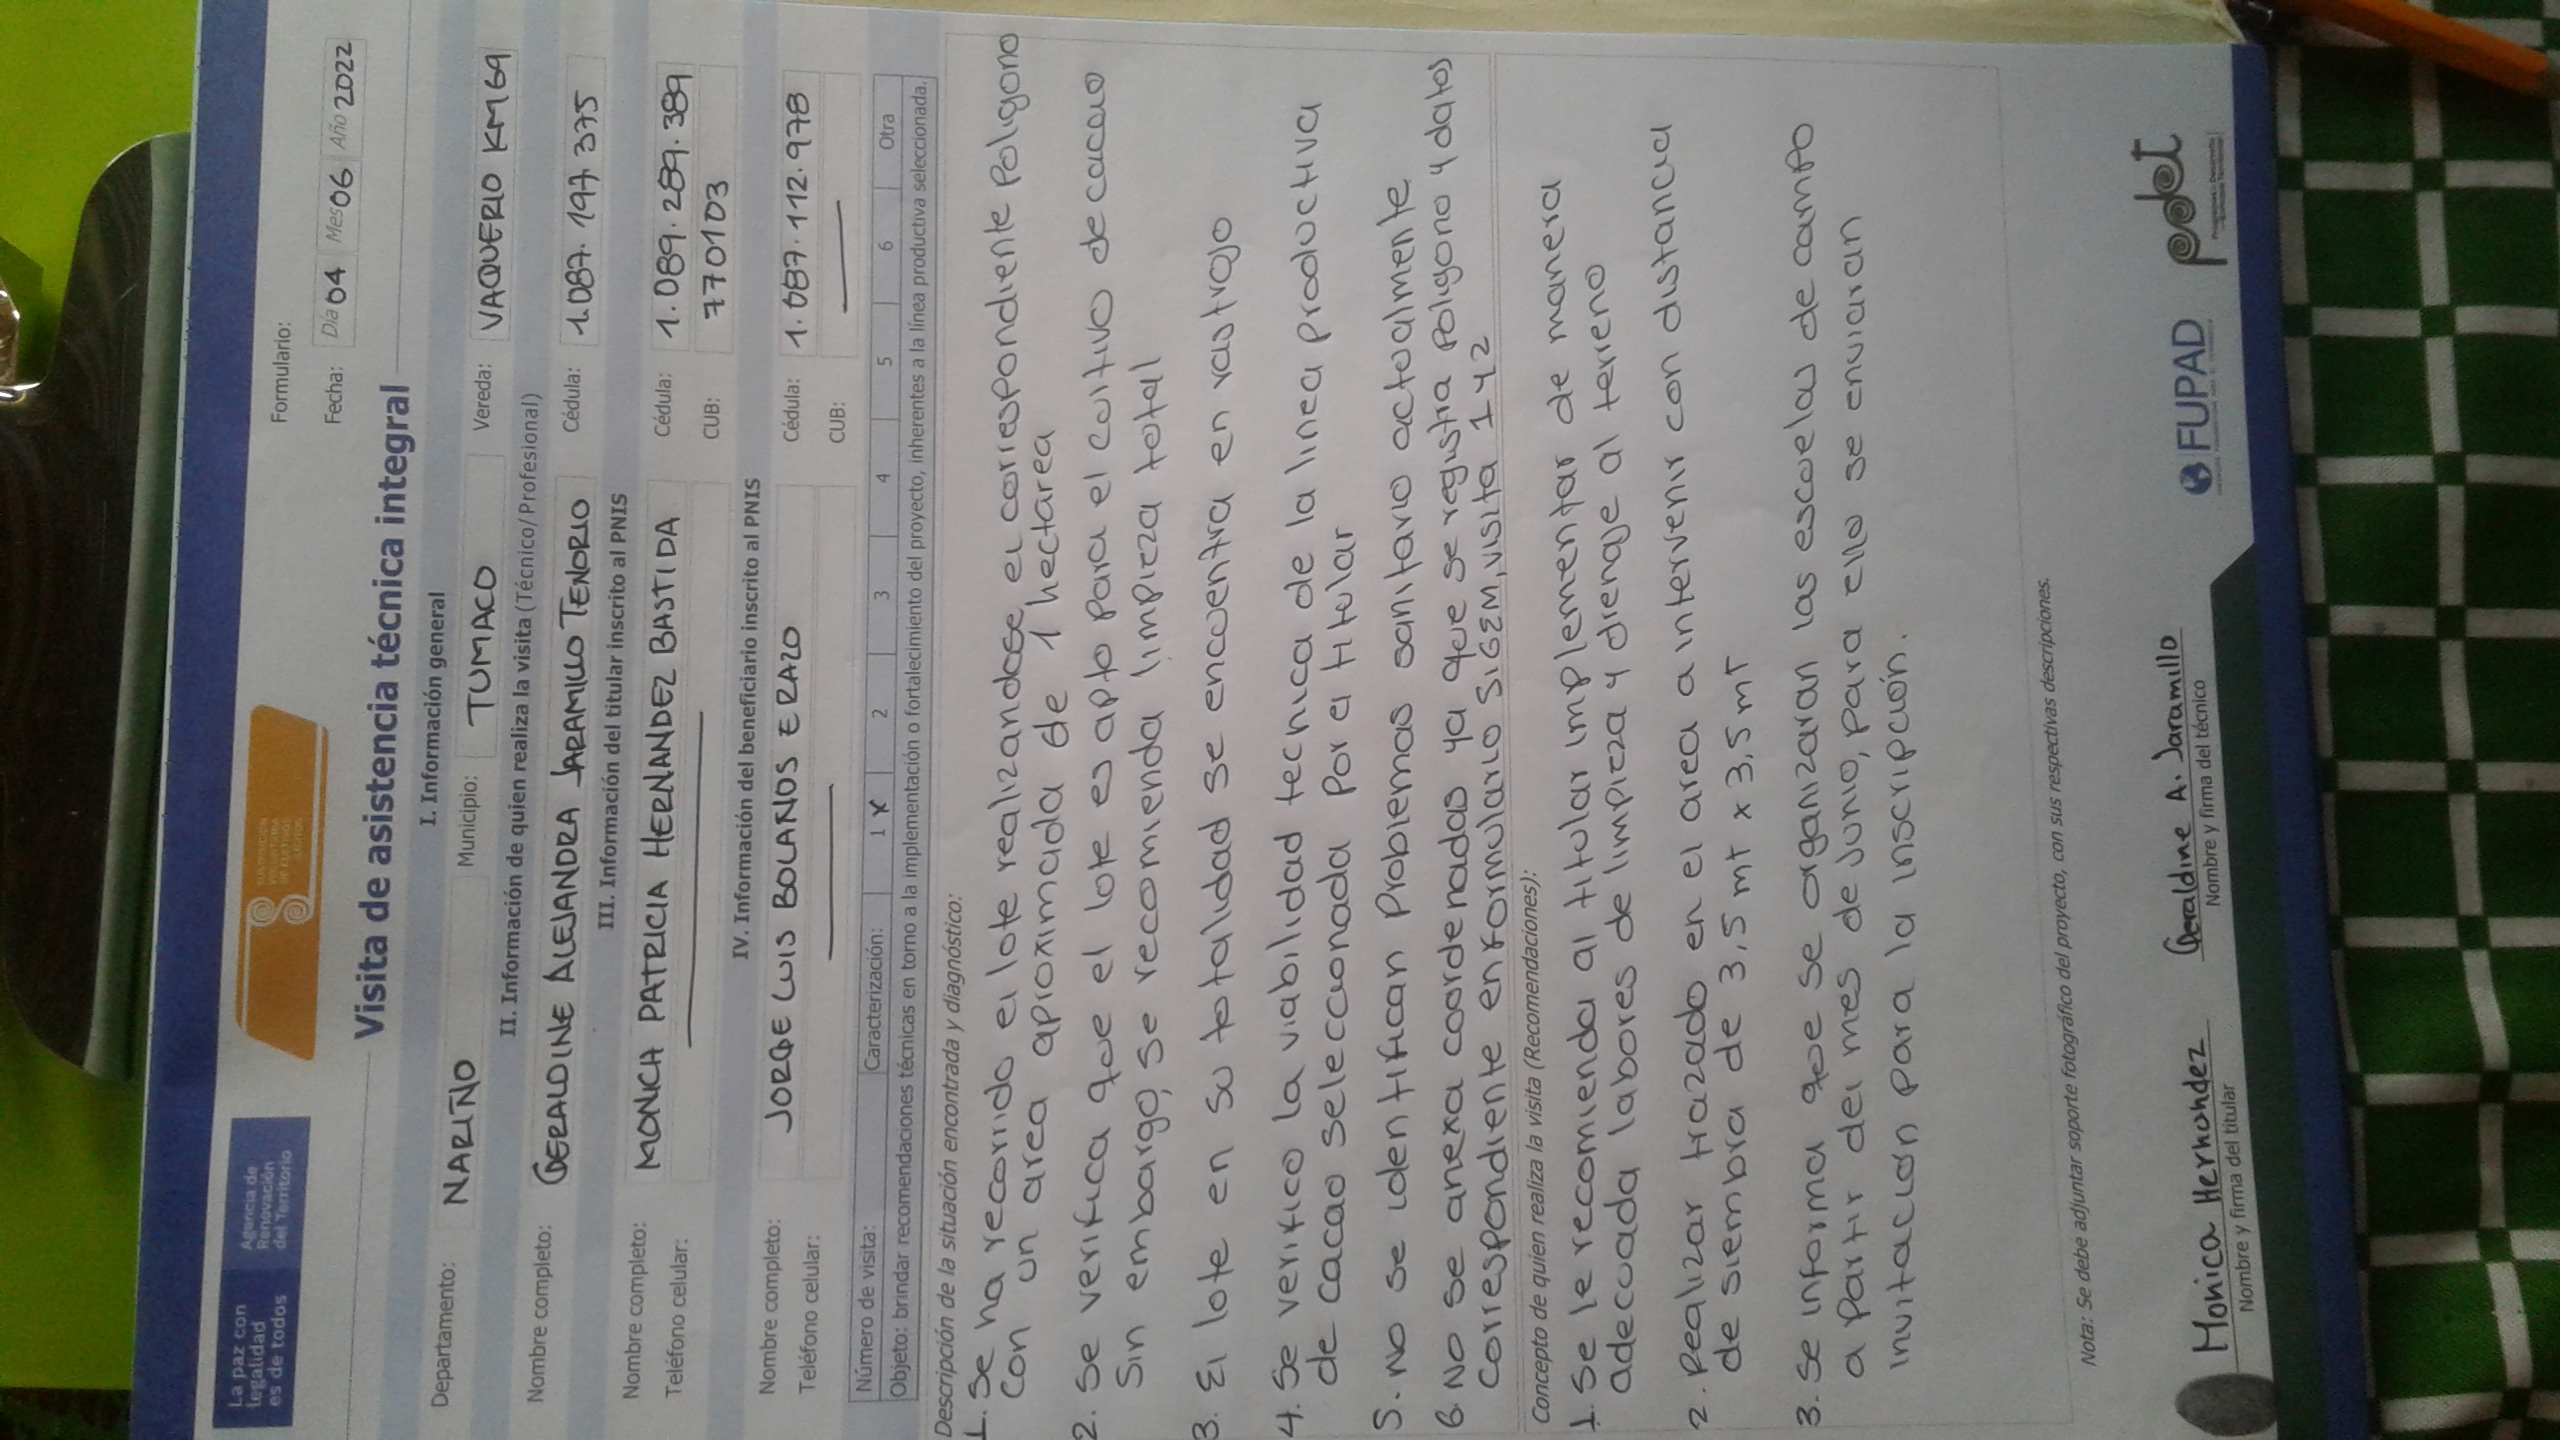 La paz con
legalidad
es de todos
Agencia de
Renovación
del Territorio
SUSTITUCIÓN
VOLUNTARIA
DE CULTIVOS
ILÍCITOS
Formulario:
Fecha: Día 04 Mes 06 Año 2022
Visita de asistencia técnica integral
I. Información general
Departamento: NARIÑO Municipio: TUMACO Vereda: VAQUERIO KM 69
II. Información de quien realiza la visita (Técnico/Profesional)
Nombre completo: GERALDINE ALEJANDRA JARAMILLO TENORIO Cédula: 1.087.197.375
III. Información del titular inscrito al PNIS
Nombre completo: MONICA PATRICIA HERNANDEZ BASTIDA Cédula: 1.089.289.389
Teléfono celular: CUB: 770103
IV. Información del beneficiario inscrito al PNIS
Nombre completo: JORGE LUIS BOLAÑOS ERAZO Cédula: 1.087.112.978
Teléfono celular: CUB:
Número de visita: Caracterización: 1 X 2 3 4 5 6 Otra
Objeto: brindar recomendaciones técnicas en torno a la implementación o fortalecimiento del proyecto, inherentes a la línea productiva seleccionada.
Descripción de la situación encontrada y diagnóstico:
1. Se ha recorrido el lote realizandose el correspondiente Poligono
con un area aproximada de 1 hectarea
2. Se verifica que el lote es apto para el cultivo de cacao
Sin embargo, se recomienda limpieza total
3. El lote en su totalidad se encuentra en rastrojo
4. Se verifico la viabilidad tecnica de la linea productiva
de cacao seleccionada por el titular
5. No se identifican Problemas sanitario actualmente
6. No se anexa coordenadas ya que se registra Poligono y datos
correspondiente en formulario SIGEM, visita 1 y 2
Concepto de quien realiza la visita (Recomendaciones):
1. Se le recomienda al titular implementar de manera
adecuada labores de limpieza y drenaje al terreno
2. Realizar trazado en el area a intervenir con distancia
de siembra de 3,5 mt x 3,5 mt
3. Se informa que se organizaran las escuelas de campo
a partir del mes de Junio, para ello se enviaran
invitacion para la inscripción.
Nota: Se debe adjuntar soporte fotográfico del proyecto, con sus respectivas descripciones.
Monica Hernandez
Nombre y firma del titular
Geraldine A. Jaramillo
Nombre y firma del técnico
FUPAD
PDET